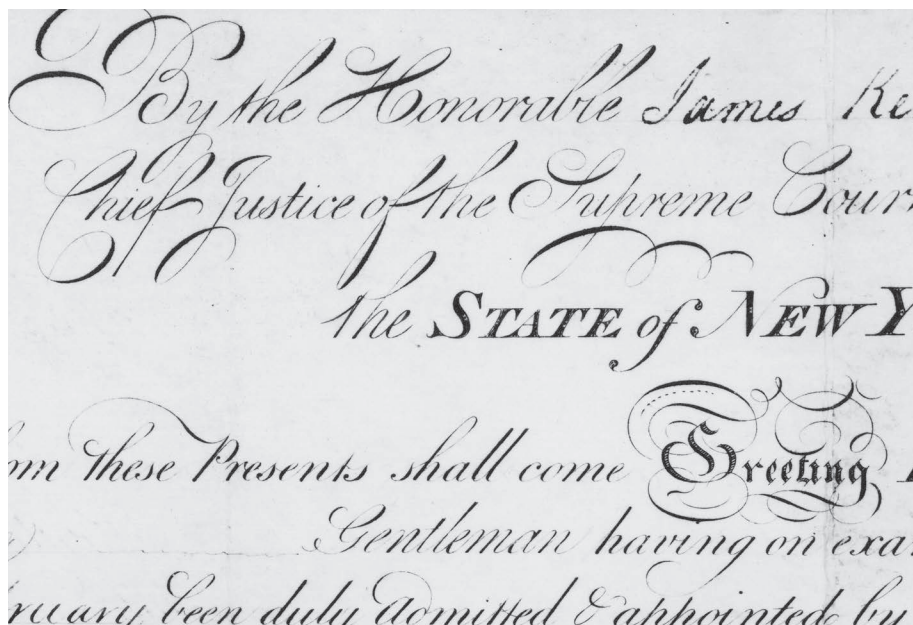 By the Honorable James Ke
Chief Justice of the Supreme Cour
the STATE of NEW Y
om these Presents shall come Greeting
Gentleman having on exa
ruary been duly admitted & appointed by